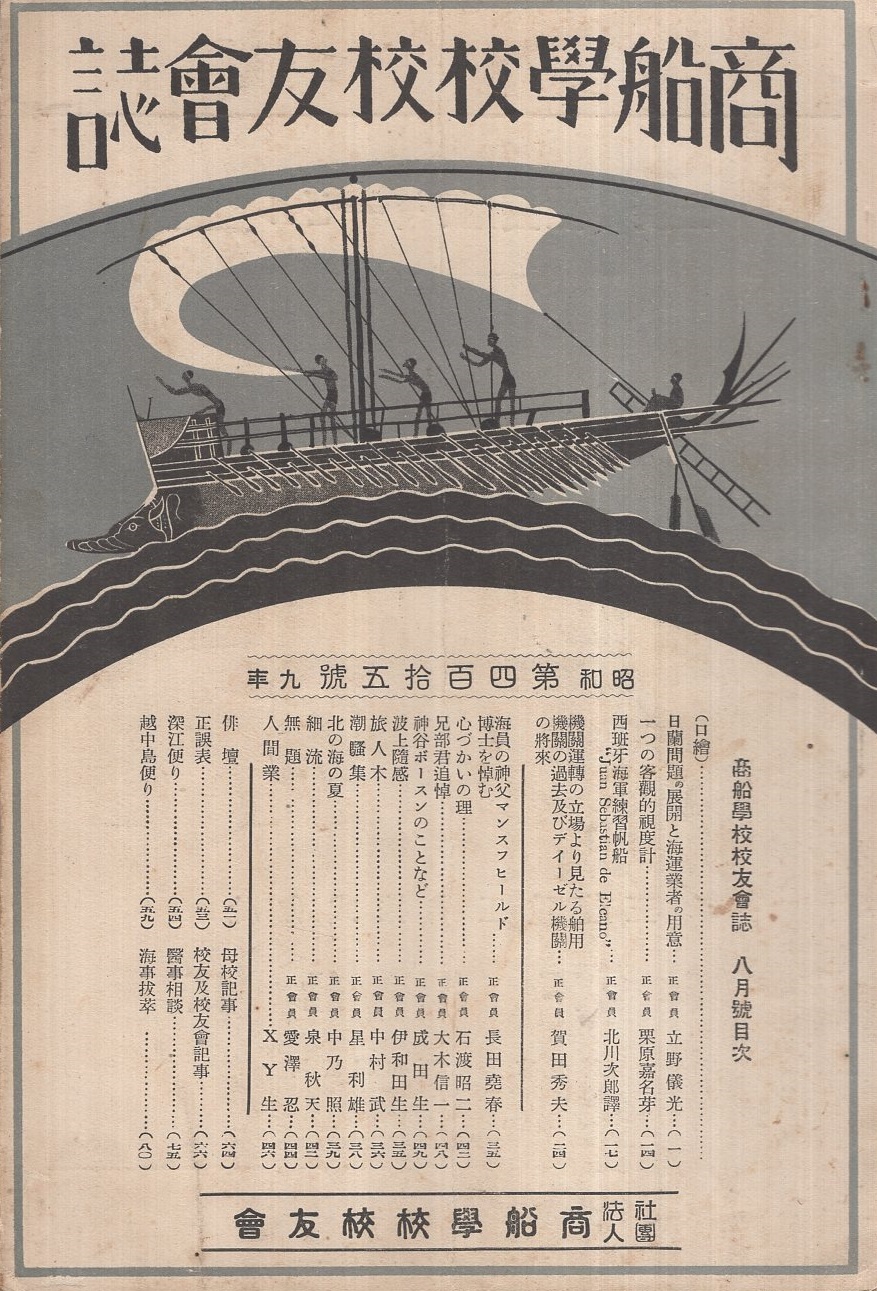 商船學校校友會誌
昭和九年 第四百拾五號
商船學校校友會誌 八月號目次
(口繪)
日蘭問題の展開と海運業者の用意… 正會員 立野儀光…(一)
一つの客觀的視度計… 正會員 栗原嘉名芽…(一四)
西班牙海軍練習帆船
"Juan Sebastian de Elcano"… 正會員 北川次郎譯…(一七)
機關運轉の立場より見たる舶用
機關の過去及びデイーゼル機關… 正會員 賀田秀夫…(二四)
の將來
海員の神父マンスフヒールド… 正會員 長田堯春…(三五)
博士を悼む
心づかいの理… 正會員 石渡昭二…(四三)
兄部君追悼… 正會員 大木信一…(四八)
神谷ボースンのことなど… 正會員 成田生…(四九)
波上隨感… 正會員 伊和田生…(三五)
旅人木… 正會員 中村武…(三六)
潮騷集… 正會員 星利雄…(三八)
北の海の夏… 正會員 中乃照…(三九)
細流… 正會員 泉秋天…(四二)
無題… 正會員 愛澤忍…(四四)
人間業… XY生…(四六)
俳壇…(五一)
母校記事…(六四)
正誤表…(五三)
校友及校友會記事…(六六)
深江便り…(五四)
醫事相談…(七五)
越中島便り…(五九)
海事拔萃…(八〇)
社團法人 商船學校校友會